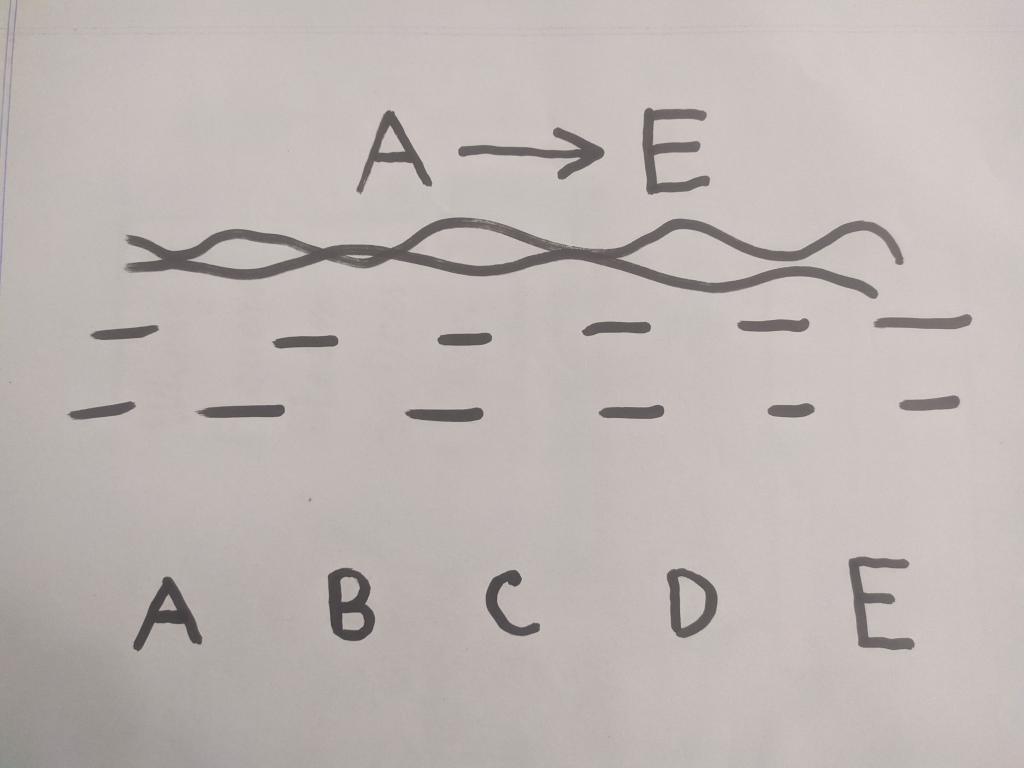 A → E
A B C D E